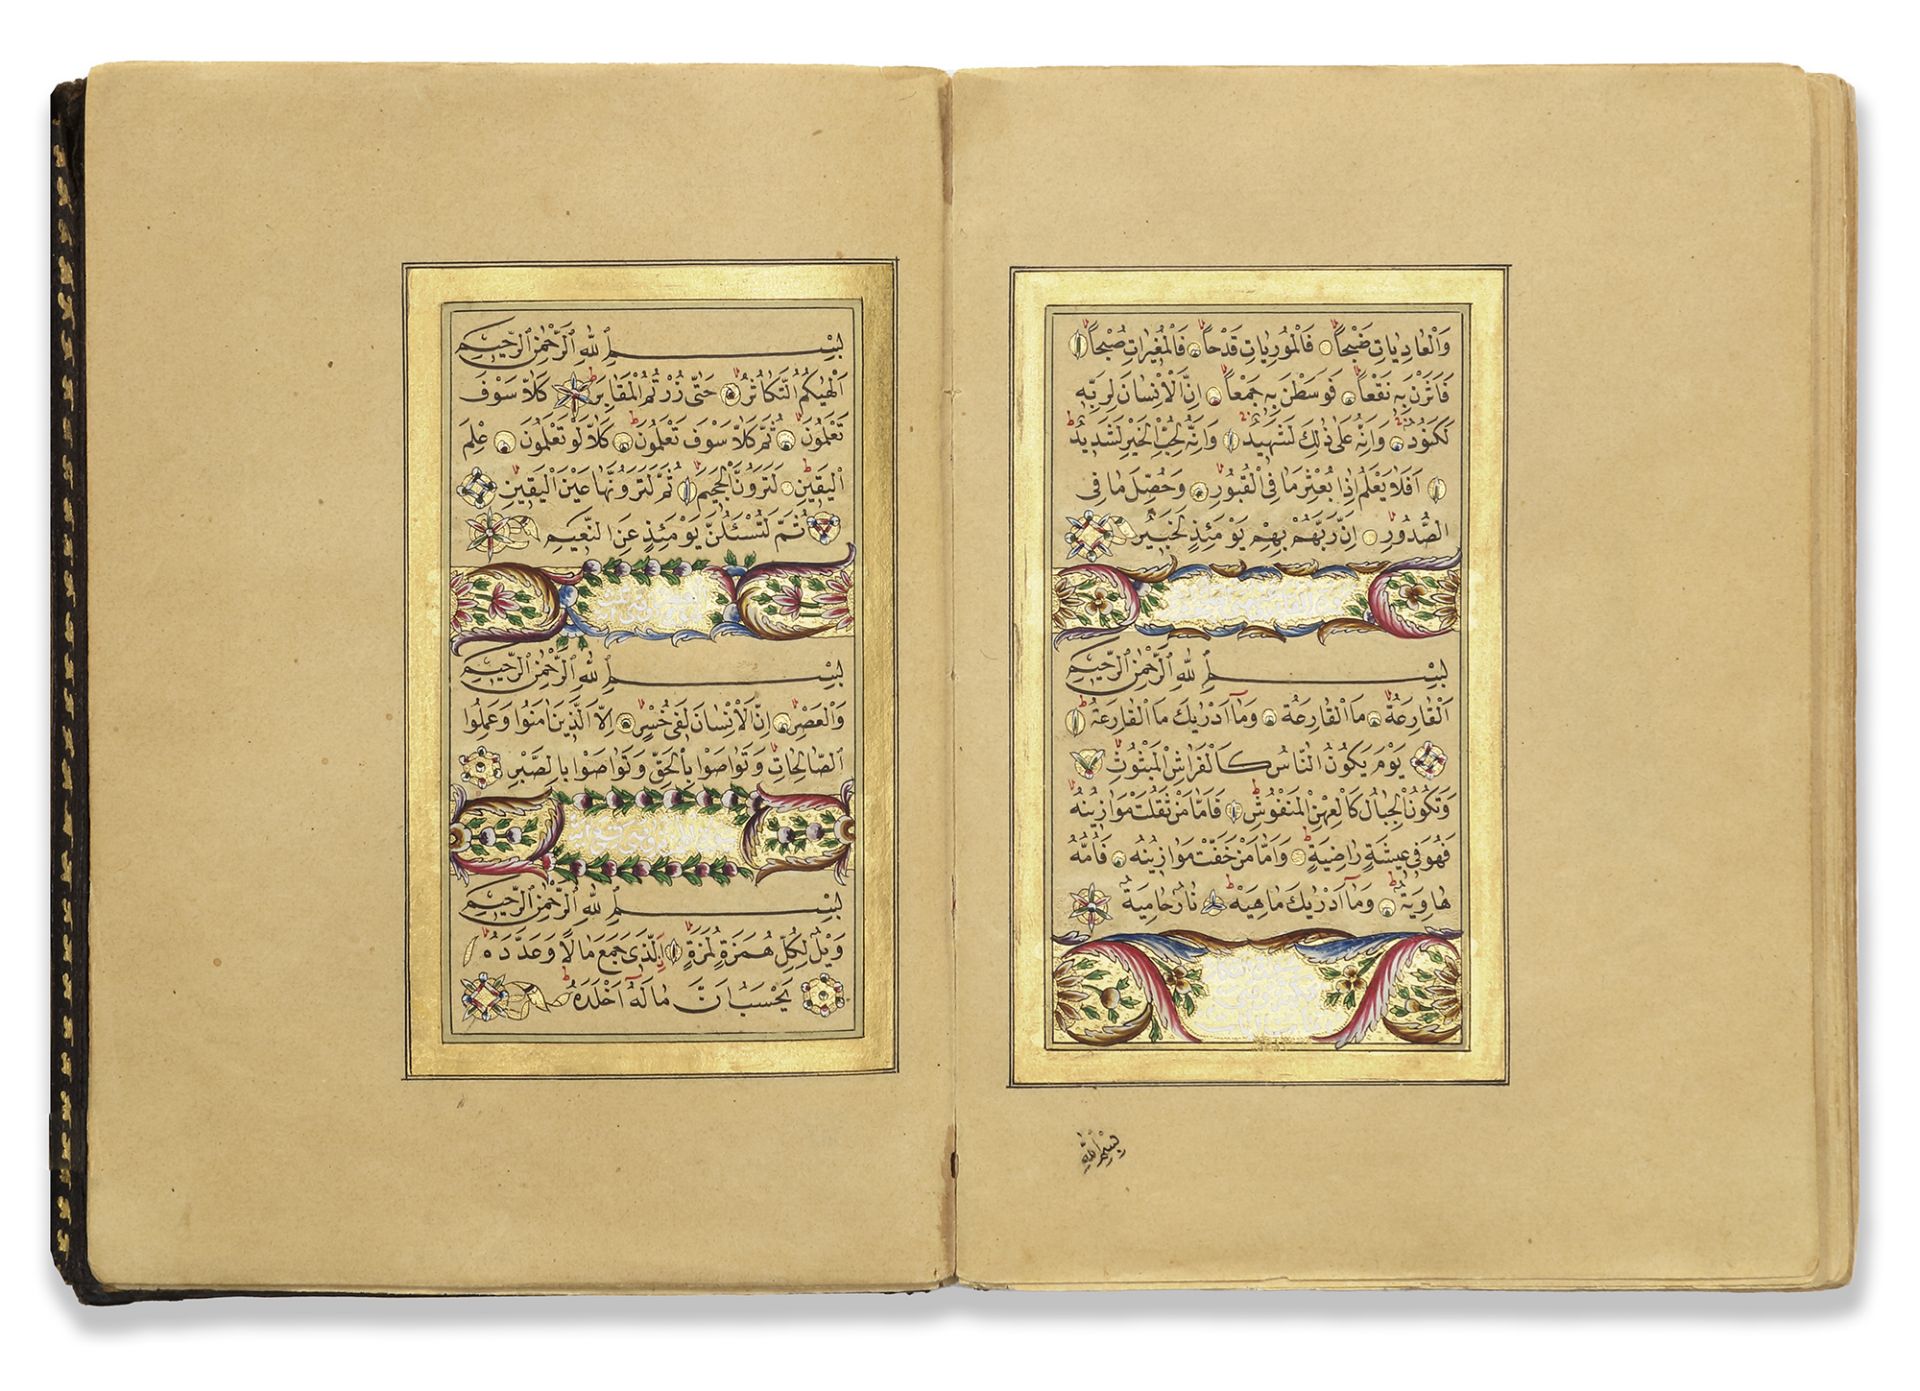 وَالْعَادِيَاتِ ضَبْحًا فَالْمُورِيَاتِ قَدْحًا فَالْمُغِيرَاتِ صُبْحًا
فَاَثَرْنَ بِهِ نَقْعًا فَوَسَطْنَ بِهِ جَمْعًا اِنَّ الْاِنْسَانَ لِرَبِّهِ
لَكَنُودٌ وَاِنَّهُ عَلٰى ذٰلِكَ لَشَهِيدٌ وَاِنَّهُ لِحُبِّ الْخَيْرِ لَشَدِيدٌ
اَفَلَا يَعْلَمُ اِذَا بُعْثِرَ مَا فِى الْقُبُورِ وَحُصِّلَ مَا فِى
الصُّدُورِ اِنَّ رَبَّهُمْ بِهِمْ يَوْمَئِذٍ لَخَبِيرٌ
بِسْمِ اللهِ الرَّحْمٰنِ الرَّحِيمِ
اَلْقَارِعَةُ مَا الْقَارِعَةُ وَمَٓا اَدْرٰيكَ مَا الْقَارِعَةُ
يَوْمَ يَكُونُ النَّاسُ كَالْفَرَاشِ الْمَبْثُوثِ
وَتَكُونُ الْجِبَالُ كَالْعِهْنِ الْمَنْفُوشِ فَاَمَّا مَنْ ثَقُلَتْ مَوَازِينُهُ
فَهُوَ فِى عِيشَةٍ رَاضِيَةٍ وَاَمَّا مَنْ خَفَّتْ مَوَازِينُهُ فَاُمُّهُ
هَاوِيَةٌ وَمَٓا اَدْرٰيكَ مَاهِيَهْ نَارٌ حَامِيَةٌ
بِسْمِ اللهِ
بِسْمِ اللهِ الرَّحْمٰنِ الرَّحِيمِ
اَلْهٰيكُمُ التَّكَاثُرُ حَتّٰى زُرْتُمُ الْمَقَابِرَ كَلَّا سَوْفَ
تَعْلَمُونَ ثُمَّ كَلَّا سَوْفَ تَعْلَمُونَ كَلَّا لَوْ تَعْلَمُونَ عِلْمَ
الْيَقِينِ لَتَرَوُنَّ الْجَحِيمَ ثُمَّ لَتَرَوُنَّهَا عَيْنَ الْيَقِينِ
ثُمَّ لَتُسْئَلُنَّ يَوْمَئِذٍ عَنِ النَّعِيمِ
بِسْمِ اللهِ الرَّحْمٰنِ الرَّحِيمِ
وَالْعَصْرِ اِنَّ الْاِنْسَانَ لَفِى خُسْرٍ اِلَّا الَّذِينَ اٰمَنُوا وَعَمِلُوا
الصَّالِحَاتِ وَتَوَاصَوْا بِالْحَقِّ وَتَوَاصَوْا بِالصَّبْرِ
بِسْمِ اللهِ الرَّحْمٰنِ الرَّحِيمِ
وَيْلٌ لِكُلِّ هُمَزَةٍ لُمَزَةٍ اَلَّذِى جَمَعَ مَالًا وَعَدَّدَهُ
يَحْسَبُ اَنَّ مَالَهُٓ اَخْلَدَهُ